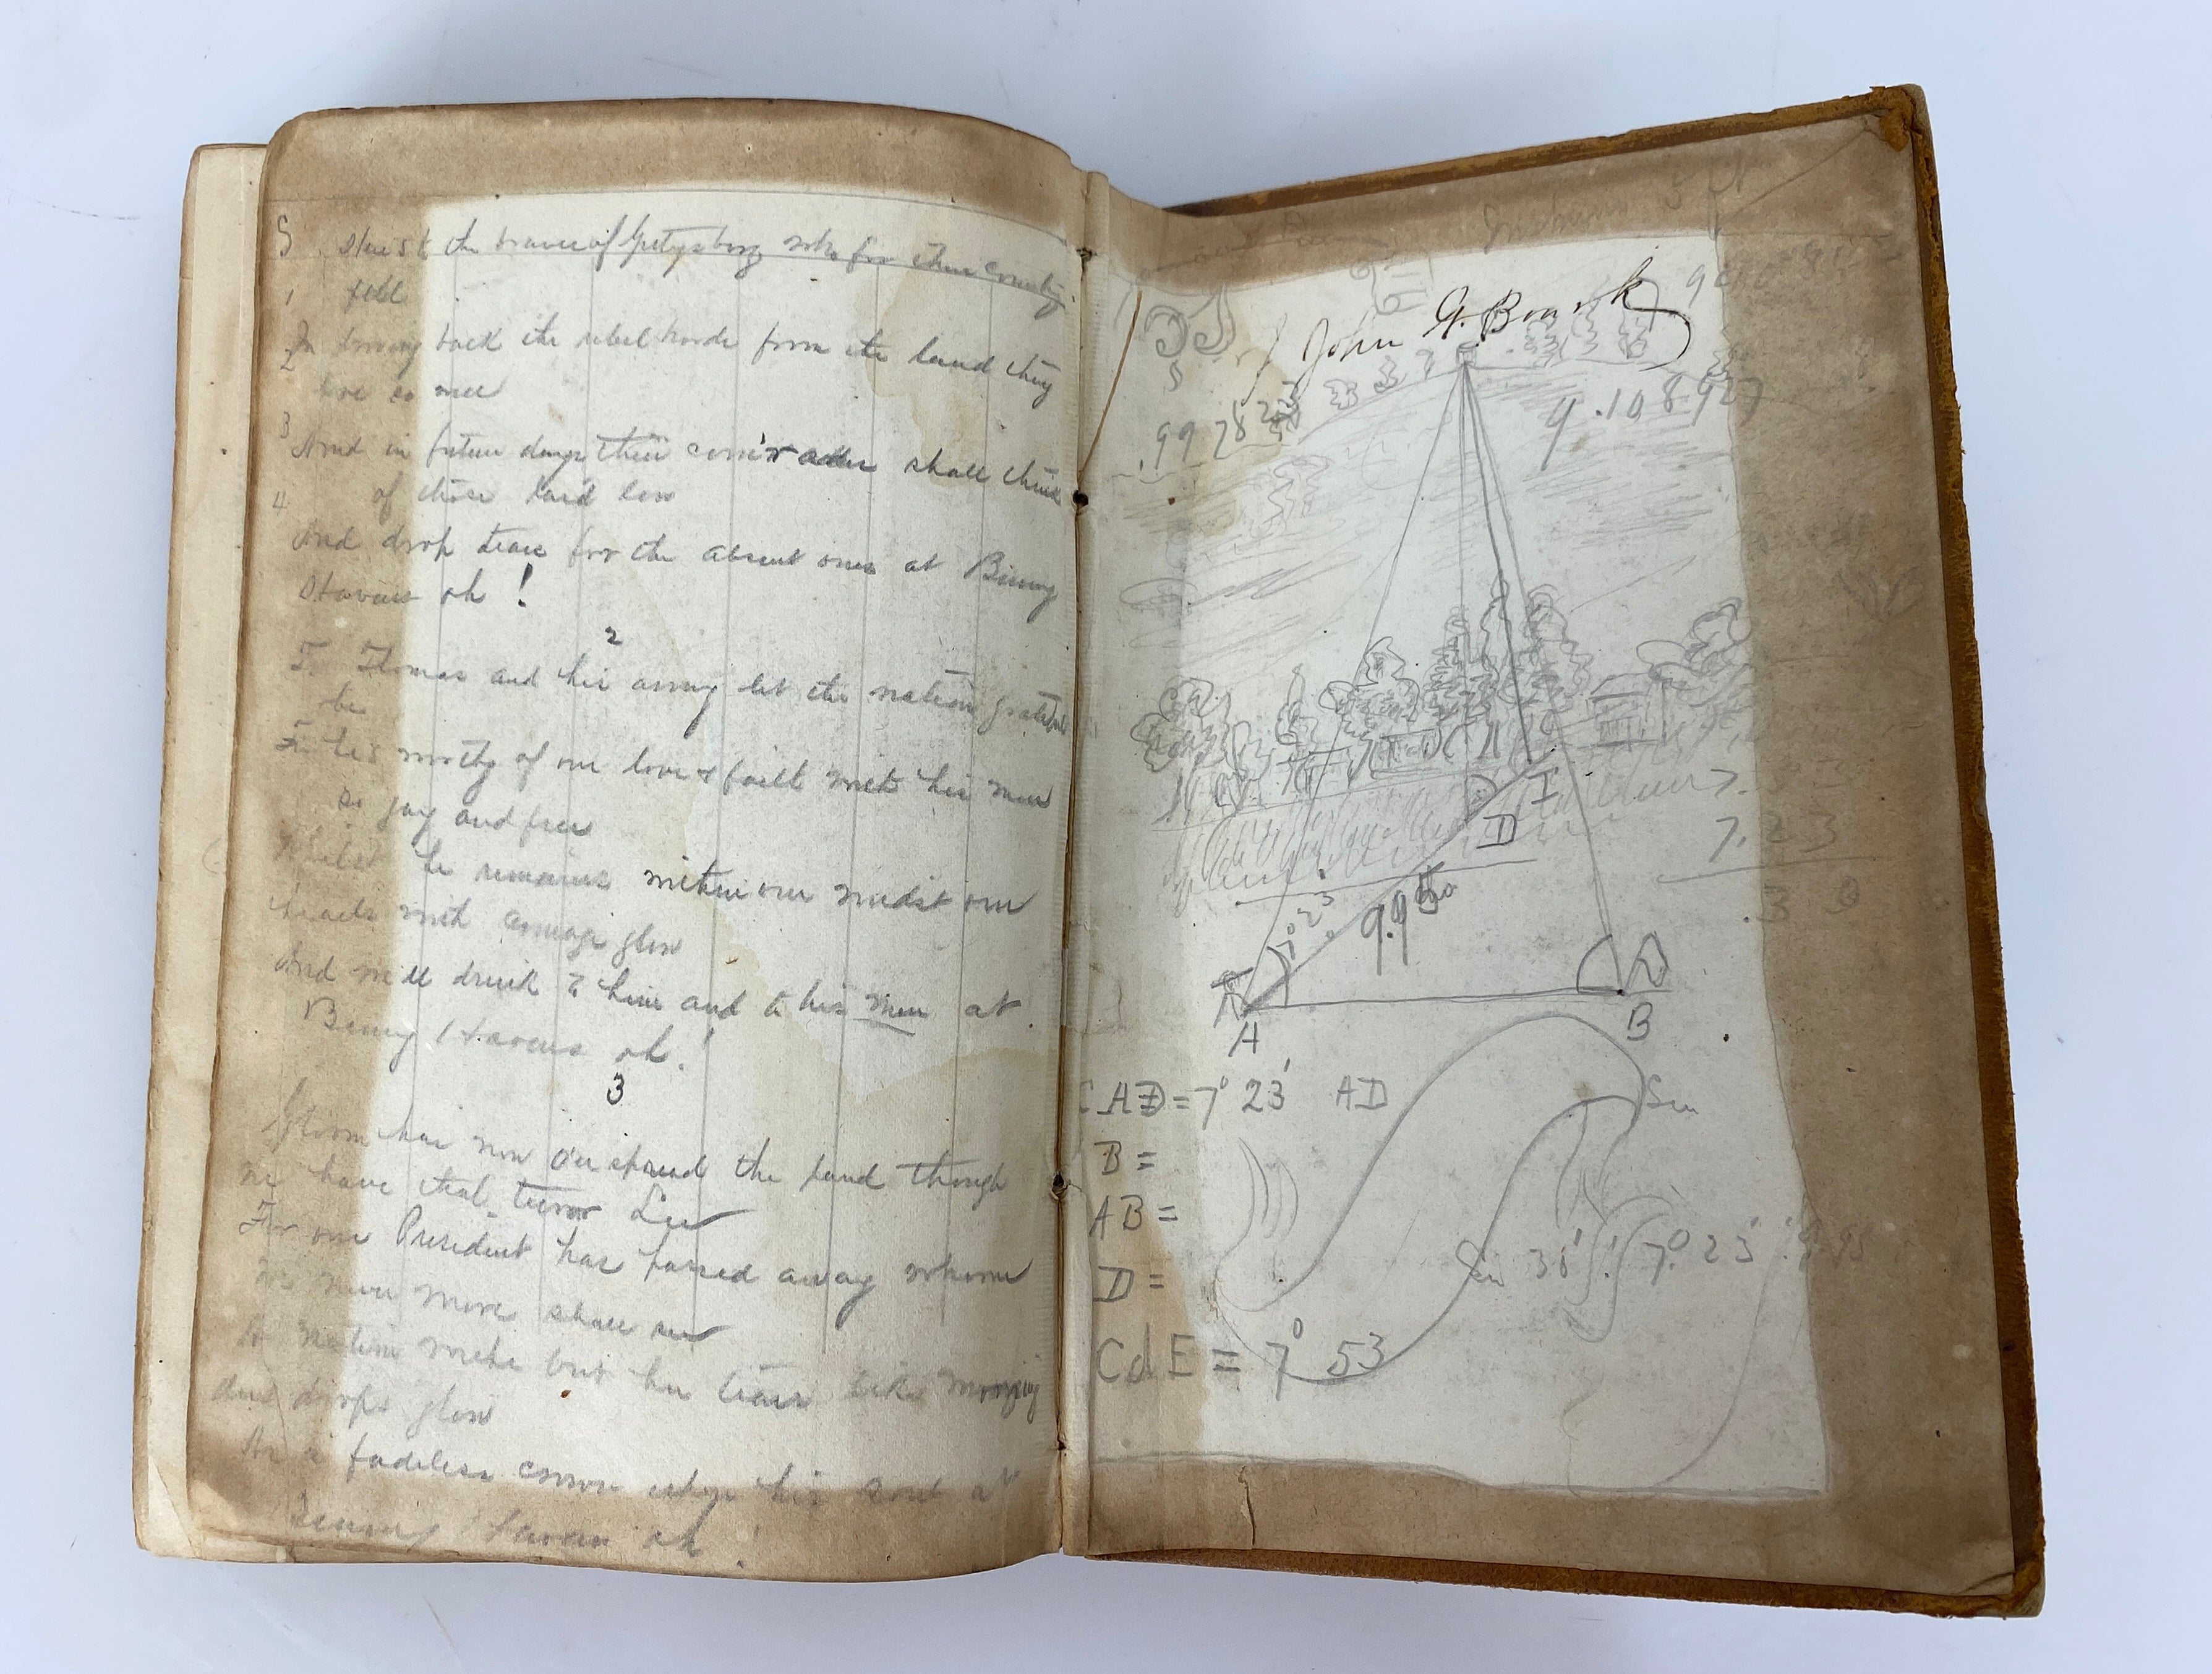 5 Here's to the braves of Gettysburg who for their country
1 fell
In driving back the rebel horde from the land they
2 love so well
3 And in future days their comrades shall think
of those laid low
4 And drop tears for the absent ones at Benny
Havens oh!
2
To Thomas and his army let the nation grateful
be
For he's worthy of our love & faith with his men
so gay and free
Whilst he remains within our midst our
hearts with courage glow
And we'll drink to him and to his men at
Benny Havens oh!
3
Gloom has now o'erspread the land though
we have that terror Lee
For our President has passed away whom
we never more shall see
A nation weeps but her tears like morning
dew drops glow
In a fadeless crown upon his soul at
Benny Havens oh!
John G. Bourk
9.108927
.9978
7.53
7.23
.30
E
D
7°23
9.950
A
B
CAD = 7° 23' AD
Sin
B =
AB =
D =
Sin 30' : 7° 23' :: 9.95
CdE = 7° 53